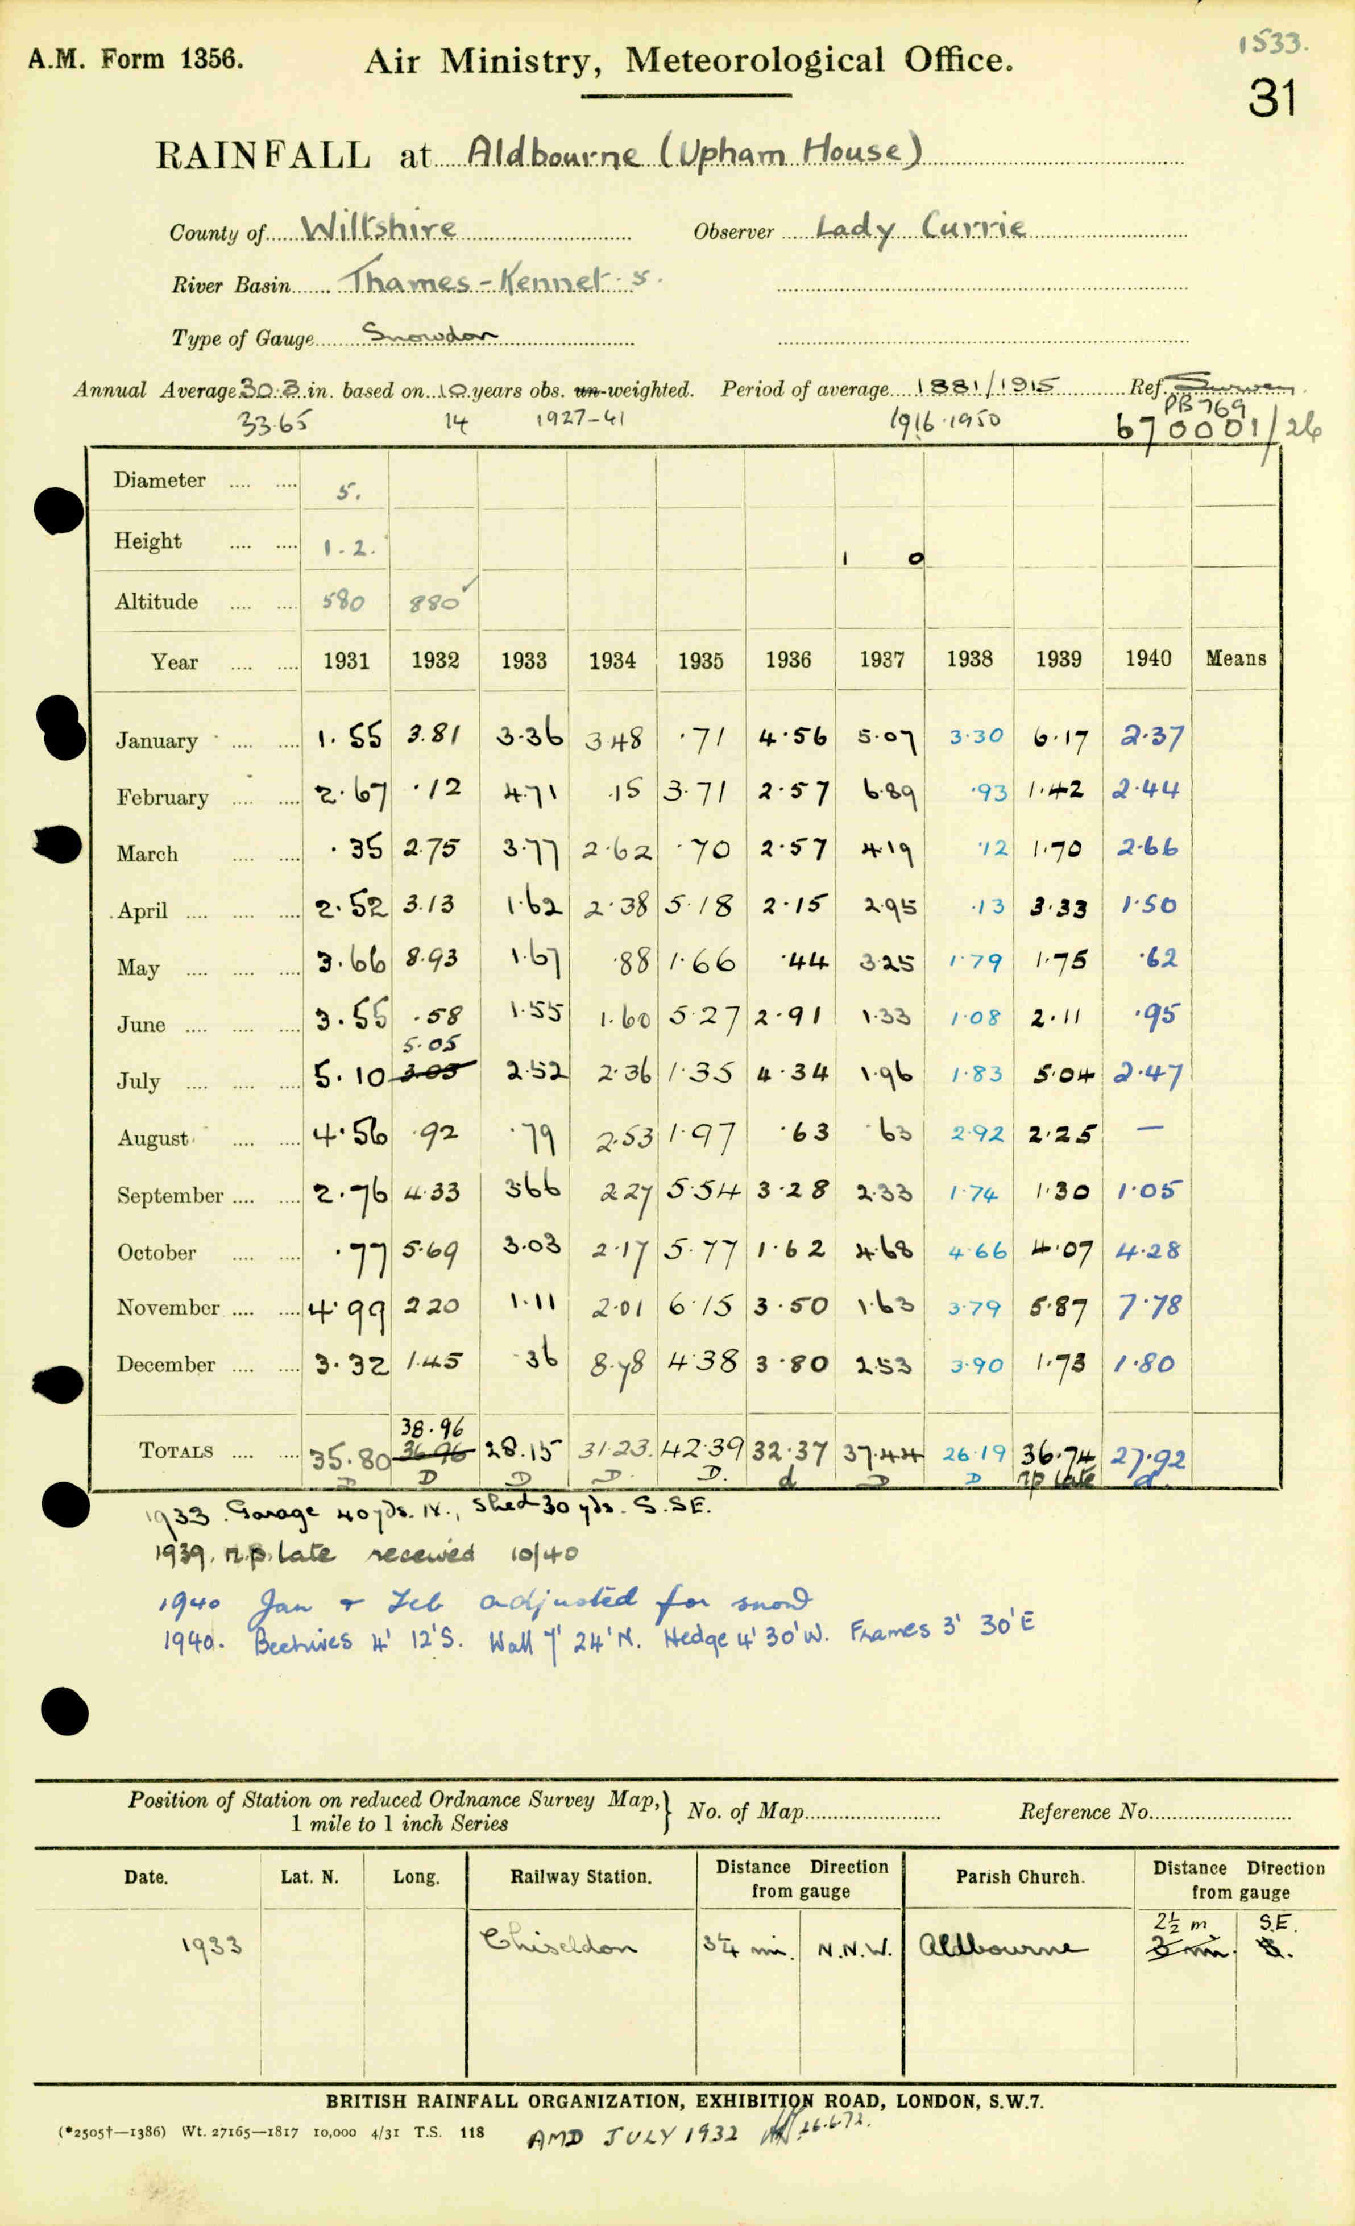 1533.
A.M. Form 1356. Air Ministry, Meteorological Office.
31
RAINFALL at Aldbourne (Upham House)
County of Wiltshire Observer Lady Currie
River Basin Thames - Kennet . 5.
Type of Gauge Snowdon
Annual Average 30.3 in. based on 10 years obs. un-weighted. Period of average 1881/1915 Ref. Survey
PB 769
33.65 14 1927-41 1916-1950 670001/26
Diameter 5.
Height 1.2. 1 0
Altitude 580 880 ✓
Year 1931 1932 1933 1934 1935 1936 1937 1938 1939 1940 Means
January 1.55 3.81 3.36 3.48 .71 4.56 5.07 3.30 6.17 2.37
February 2.67 .12 4.71 .15 3.71 2.57 6.89 .93 1.42 2.44
March .35 2.75 3.77 2.62 .70 2.57 4.19 .12 1.70 2.66
April 2.52 3.13 1.62 2.38 5.18 2.15 2.95 .13 3.33 1.50
May 3.66 8.93 1.67 .88 1.66 .44 3.25 1.79 1.75 .62
June 3.55 .58 1.55 1.60 5.27 2.91 1.33 1.08 2.11 .95
5.05
July 5.10 3.05 2.52 2.36 1.35 4.34 1.96 1.83 5.04 2.47
August 4.56 .92 .79 2.53 1.97 .63 .63 2.92 2.25 —
September 2.76 4.33 3.66 2.27 5.54 3.28 2.33 1.74 1.30 1.05
October .77 5.69 3.03 2.17 5.77 1.62 4.68 4.66 4.07 4.28
November 4.99 2.20 1.11 2.01 6.15 3.50 1.63 3.79 5.87 7.78
December 3.32 1.45 .36 8.78 4.38 3.80 2.53 3.90 1.73 1.80
38.96
TOTALS 35.80 36.96 28.15 31.23 42.39 32.37 37.44 26.19 36.74 27.92
D D D D. D. d D D rp late d.
1933. Garage 40 yds. N., Shed 30 yds. S.SE.
1939. r.p. late received 10/40
1940 Jan + Feb adjusted for snow
1940. Beehives 4' 12'S. Wall 7' 24'N. Hedge 4' 30'W. Frames 3' 30'E
Position of Station on reduced Ordnance Survey Map,} No. of Map Reference No.
1 mile to 1 inch Series
Date. Lat. N. Long. Railway Station. Distance Direction from gauge Parish Church. Distance Direction from gauge
2½ m S.E.
1933 Chiseldon 3¼ mi. N.N.W. Aldbourne 3 mi. S.
BRITISH RAINFALL ORGANIZATION, EXHIBITION ROAD, LONDON, S.W.7.
(*2505†—1386) Wt. 27165—1817 10,000 4/31 T.S. 118 AMD JULY 1932 26.6.72.